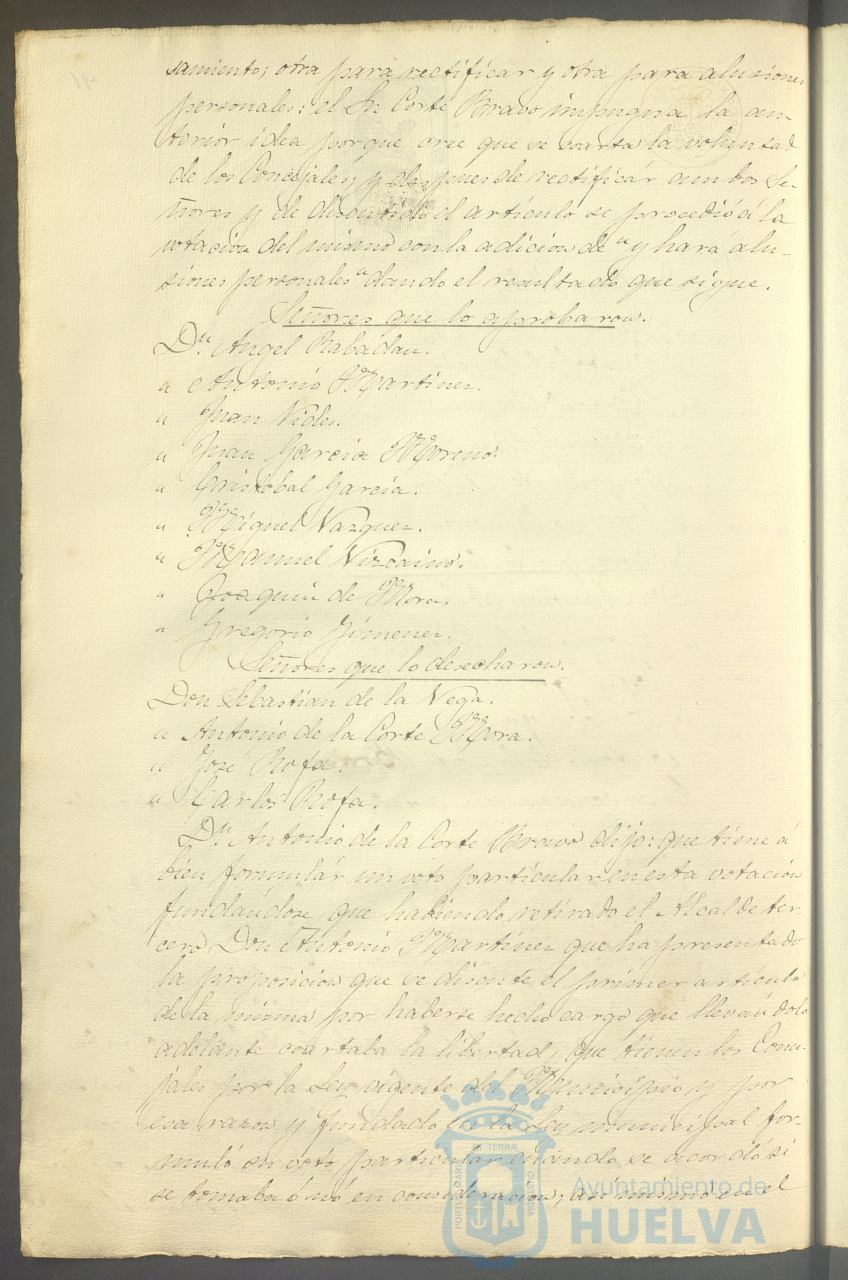 samiento; otra para rectificar y otra para alusiones
personales: el Sr. Corte Bravo impugna la an-
terior idea porque cree que se coarta la voluntad
de los Concejales; y despues de rectificár ambos Se-
ñores y de discutido el articulo se procedió á la
votacion del mismo con la adicion de "y hará alu-
siones personales" dando el resultado que sigue.
Señores que lo aprobaron.
Dn. Angel Rabadan.
" Antonio Martinez.
" Juan Vides.
" Juan Garcia Moreno.
" Cristobal Garcia.
" Miguel Vazquez.
" Manuel Vizcaino.
" Joaquin de Mora.
" Gregorio Jimenez.
Señores que lo desecharon.
Don Sebastian de la Vega.
" Antonio de la Corte Mora.
" José Rofa.
" Carlos Rofa.
Dn. Antonio de la Corte Bravo dijo: que tiene á
bien formulár un voto particular en esta votacion
fundandose, que habiendo retirado el Alcalde ter-
cero Don Antonio Martinez que ha presentado
la proposicion que se discute el primer articulo
de la misma por haberse hecho cargo que llevandolo
adelante coartaba la libertad, que tienen los Conce-
jales por la Ley vigente del Municipio y por
esa razon y fundado en la Ley municipal for-
muló su voto particular cuando se acordó si
se tomaba ó nó en consideracion; asi mismo en el
PORTUS MARIS
ET TERRÆ
CUSTODIA
Ayuntamiento de
HUELVA